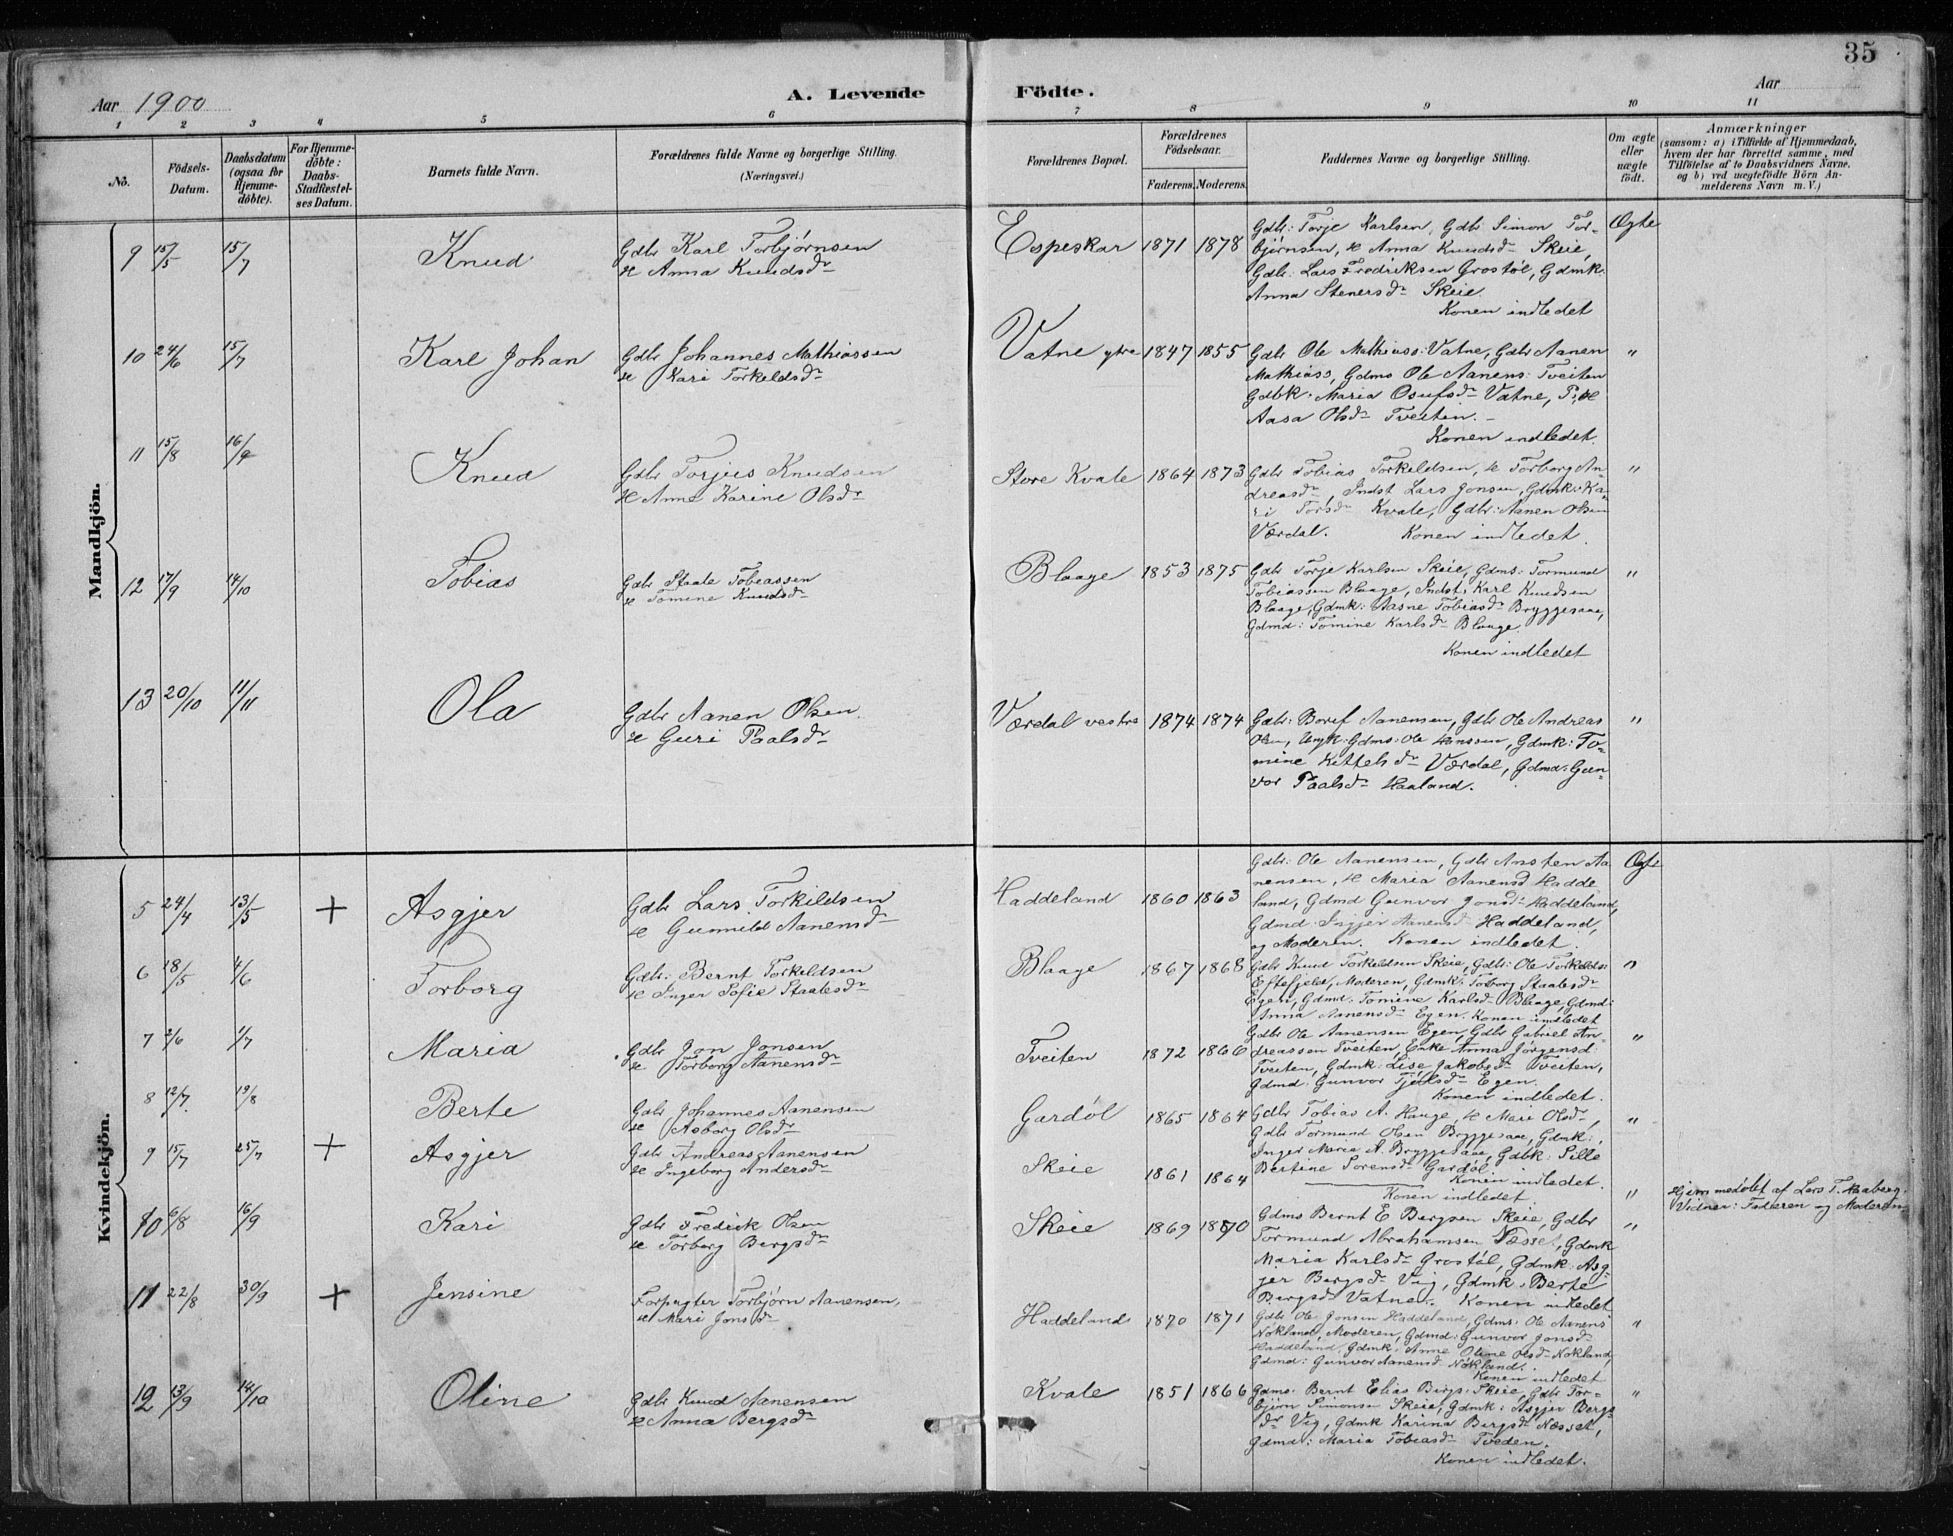 35
Aar 1900 A. Levende Födte. Aar
1 2 3 4 5 6 7 8 9 10 11
No.
Födsels-Datum.
Daabsdatum (ogsaa för Hjemme-döbte).
For Hjemme-döbte: Daabs-Stadfæstel-ses Datum.
Barnets fulde Navn.
Forældrenes fulde Navne og borgerlige Stilling. (Næringsvei.)
Forældrenes Bopæl.
Forældrenes Födselsaar.
Faderens. Moderens.
Faddernes Navne og borgerlige Stilling.
Om ægte eller uægte födt.
Anmærkninger
(saasom: a) i Tilfælde af Hjemmedaab,
hvem der har forrettet samme, med
Tilföielse af to Daabsvidners Navne,
og b) ved uægtefödte Börn An-
melderens Navn m. V.)
Mandkjön.
9 15/5 15/7 Knud
Gdbr Karl Torbjørnsen
H Anna Knudsdr
Espeskar 1871 1878
Gdbr: Torje Karlsen, Gdbr Simon Tor-
bjørnsen, H Anna Knudsdr Skeie,
Gdbr: Lars Fredriksen Grostøl, Gdmk.
Anna Stenersdr Skeie.
Konen indledet
Ægte
10 24/6 15/7 Karl Johan
Gdbr Johannes Mathiassen
H Kari Torkeldsdr
Vatne ytre 1847 1855
Gdbr Ole Mathiass: Vatne, Gdbr Aanen
Mathiass, Gdms Ole Aanens: Tveiten
Gdbk: Maria Osufsdr Vatne, P:
Aasa Olsdr Tveiten.
Konen indledet.
"
11 15/8 16/9 Knud
Gdbr Torjus Knudsen
H Anne Karine Olsdr
Store Kvale 1864 1873
Gdbr Tobias Torkildsen, H Torborg An-
dreasdr, Indst Lars Jonsen, Gdmk: Ka-
ri Torsdr Kvale, Gdbr: Aanen Olsen
Værdal. Konen indledet.
"
12 17/9 14/10 Tobias
Gdbr Staale Tobiassen
H Tomine Knudsdr
Blaage 1853 1875
Gdbr Torje Karlsen Skeie, Gdms: Tormund
Tobiassen Blaage, Indst: Karl Knudsen
Blaage, Gdmk: Aasne Tobiasdr Bryggesaae,
Gdmd: Tomine Karlsdr Blaage.
Konen indledet
"
13 20/10 11/11 Ola
Gdbr Aanen Olsen.
H Guri Paalsdr
Værdal vestre 1874 1874
Gdbr: Aanensen, Gdbr Ole Andreas
Olsen, Gdms: Ole Hanssen, Gdmk: To-
mine Kittelsdr Værdal, Gdmd: Gun-
vor Paalsdr Haaland.
"
Kvindekjön.
5 24/4 13/5 + Asgjer
Gdbr Lars Torkildsen
H Gunnild Aanensdr
Haddeland 1860 1863
Gdbr: Ole Aanensen, Gdbr Ansten Aa
nensen, H Maria Aanensd Hadde-
land, Gdmd Gunvor Jonsdr Haddeland,
Gdmd: Ingjer Aanensdr Haddeland,
og Moderen. Konen indledet.
Ægte
6 18/5 4/6 Torborg
Gdbr: Bernt Torkeldsen
H Inger Sofie Staalesdr
Blaage 1867 1868
Gdbr Knud Torkeldsen Skeie, Gdbr: Ole Torkelds:
Eftefjeld, Moderen, Gdmk: Torborg Staalesdr
Egen, Gdmd: Tomine Karlsdr Blaage, Gdmd:
Anna Aanensdr Egen. Konen indledet
"
7 2/6 1/7 Maria
Gdbr Jon Jonsen
H Torborg Aanensdr
Tveiten 1872 1866
Gdbr Ole Aanensen Egen, Gdbr Gabriel An-
dreassen Tveiten, Enke Anna Jörgensd:
Tveiten, Gdmk: Lise Jakobsdr Tveiten,
Gdmd: Gunvor Egen.
Konen indledet.
"
8 12/7 19/8 Berte
Gdbr Johannes Aanensen
H Asborg Olsdr
Gardøl 1865 1864
Gdbr Tobias A. Hauge, H Mari Olsdr,
Gdbr Tormund Olsen Bryggesaae, Gdmk:
Inger Marie A. Bryggesaae, Gdbk: Sille
Bertine Sorensdr Gardøl
Konen indledet.
"
9 15/7 25/7 + Asgjer
Gdbr Andreas Aanensen
H Ingeborg Andersdr
Skeie 1861 1864
Konen indledet.
"
Hjemmedøbt af Lars T. Haaberg.
Vidner: Faderen og Moderen
10 6/8 16/9 Kari
Gdbr Fredrik Olsen
H Torborg Bergsdr
Skeie 1869 1870
Gdms Bernt E Bergsen Skeie, Gdbr
Tormund Abrahamsen Næsset, Gdmk
Maria Karlsdr Grostøl, Gdmk: Asg-
jer Bergsdr Vig, Gdmk: Berte
Bergsdr Vatne. Konen indledet
"
11 22/8 30/9 + Jensine
Forpagter Torbjörn Aanensen,
H Mari Jonsdr
Haddeland 1870 1871
Gdbr Ole Jonsen Haddeland, Gdms: Ole Aanens
Nökland, Moderen, Gdmd: Gunvor Jonsdr
Haddeland, Gdmk: Anne Oline Olsdr Nökland,
Gdmd: Gunvor Aanensd Nökland.
Konen indledet
"
12 13/9 14/10 Oline
Gdbr Knud Aanensen
H Anna Bergsdr
Kvale 1851 1866
Gdms: Bernt Elias Bergs: Skeie, Gdbr Tor-
björn Simonsen Skeie, Gdmk: Asgjer Bergs
dr Vig, Gdmk Karina Bergsdr Næsset,
Gdmd: Maria Tobiasdr Tveden.
Konen indledet.
"